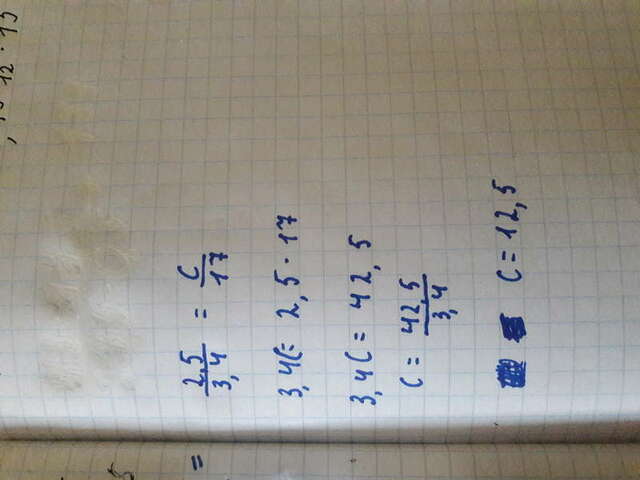 12 · 13
=
2,5/3,4 = C/17
3,4C= 2,5 · 17
3,4C = 42,5
C = 42,5/3,4
C = 12,5